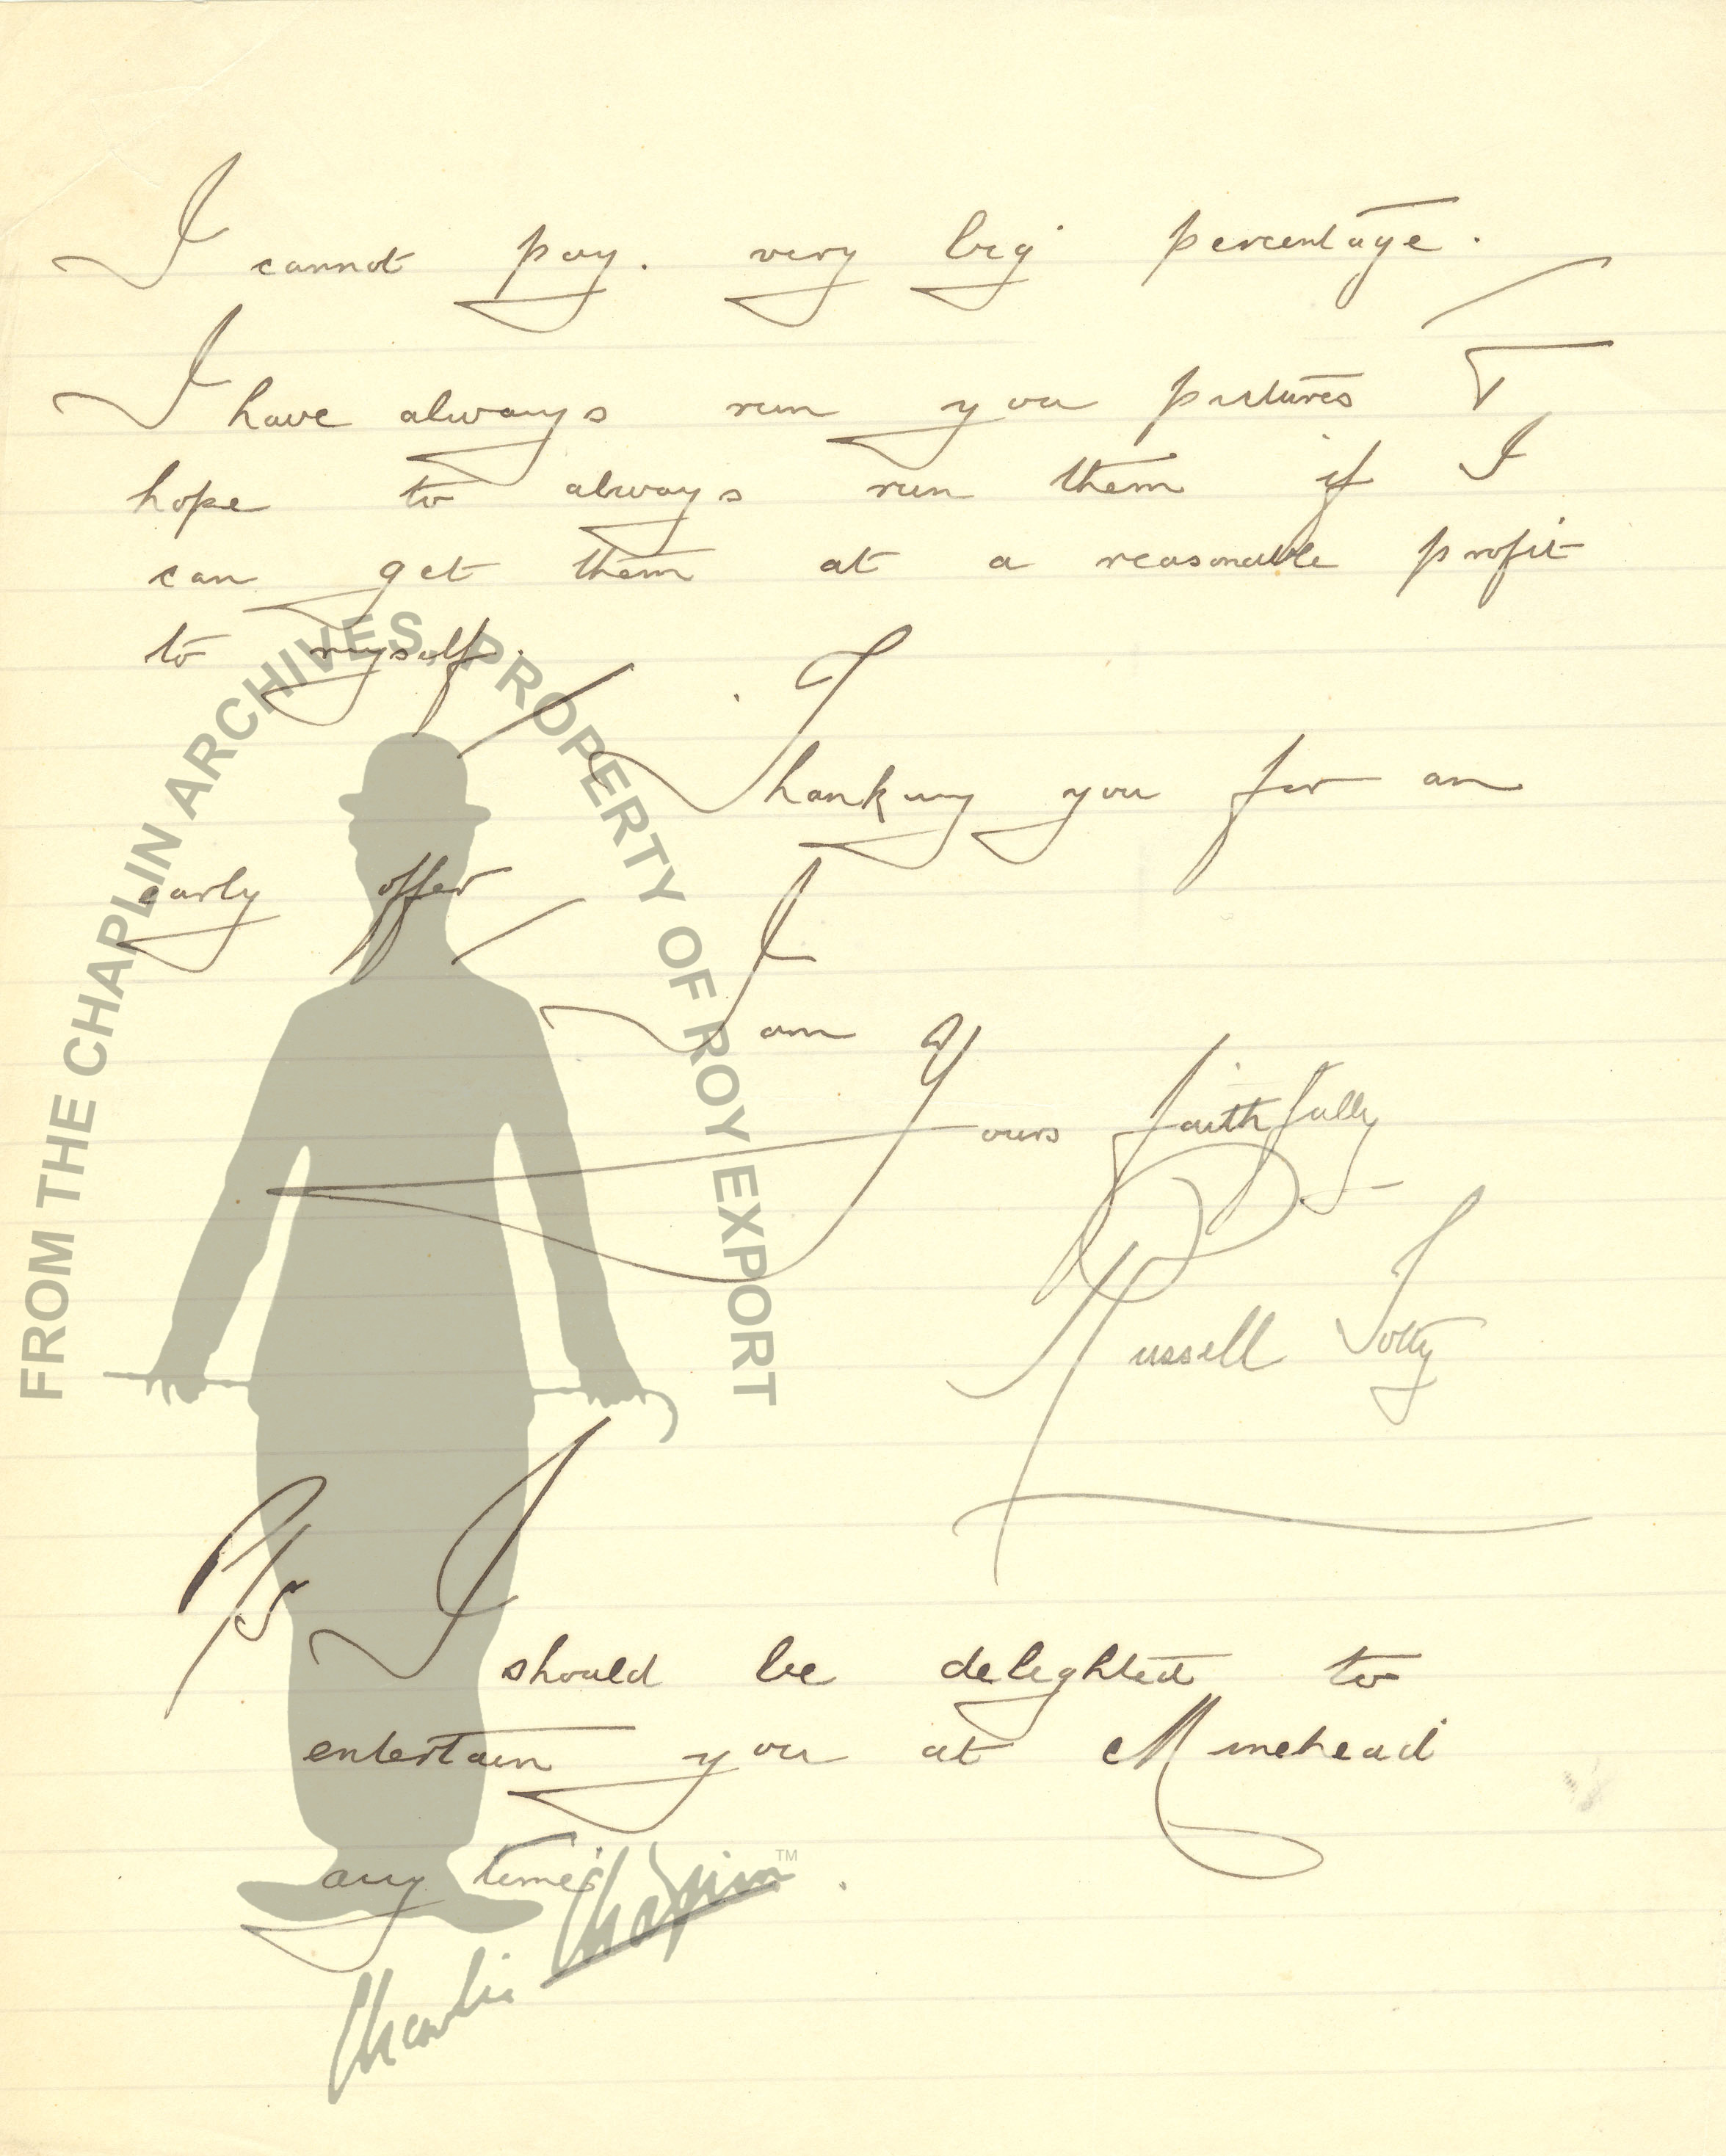 I cannot pay. very big percentage.
I have always run you pictures &
hope to always run them if I
can get them at a reasonable profit
to myself.
Thanking you for an
early offer
I am
Yours faithfully
Russell
Ps I should be delighted to
entertain you at Minehead
any time.
FROM THE CHAPLIN ARCHIVES, PROPERTY OF ROY EXPORT
Charlie Chaplin™